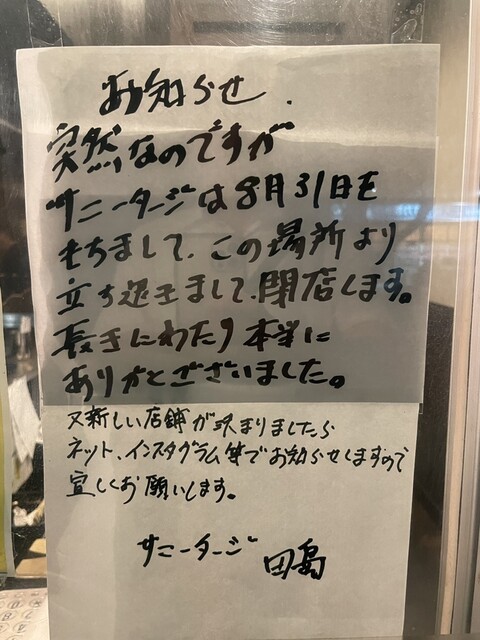 お知らせ.
突然なのですが
サニータージは8月31日を
もちまして、この場所より
立ち退きまして、閉店します。
長きにわたり本当に
ありがとございました。
又新しい店舗が決まりましたら
ネット、インスタグラム等でお知らせしますので
宜しくお願いします。
サニータージ 田島